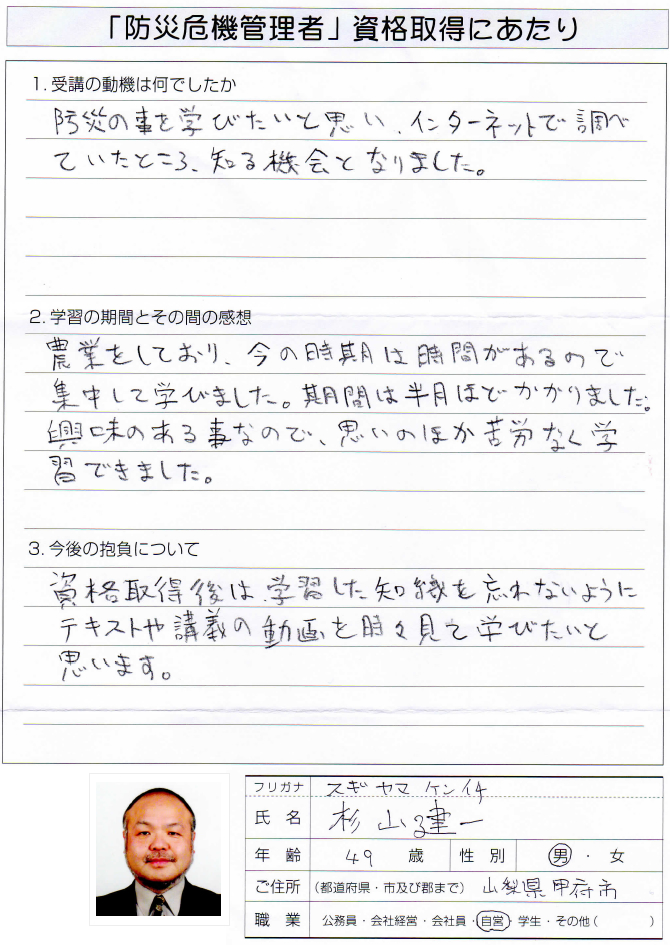 「防災危機管理者」資格取得にあたり
1. 受講の動機は何でしたか
防災の事を学びたいと思い、インターネットで調べ
ていたところ、知る機会となりました。
2. 学習の期間とその間の感想
農業をしており、今の時期は時間があるので
集中して学びました。期間は半月ほどかかりました。
興味のある事なので、思いのほか苦労なく学
習できました。
3. 今後の抱負について
資格取得後は、学習した知識を忘れないように
テキストや講義の動画を時々見て学びたいと
思います。
フリガナ スギヤマ ケンイチ
氏名 杉山健一
年齢 49 歳 性別 男・女
ご住所 (都道府県・市及び郡まで) 山梨県甲府市
職業 公務員・会社経営・会社員・自営・学生・その他( )